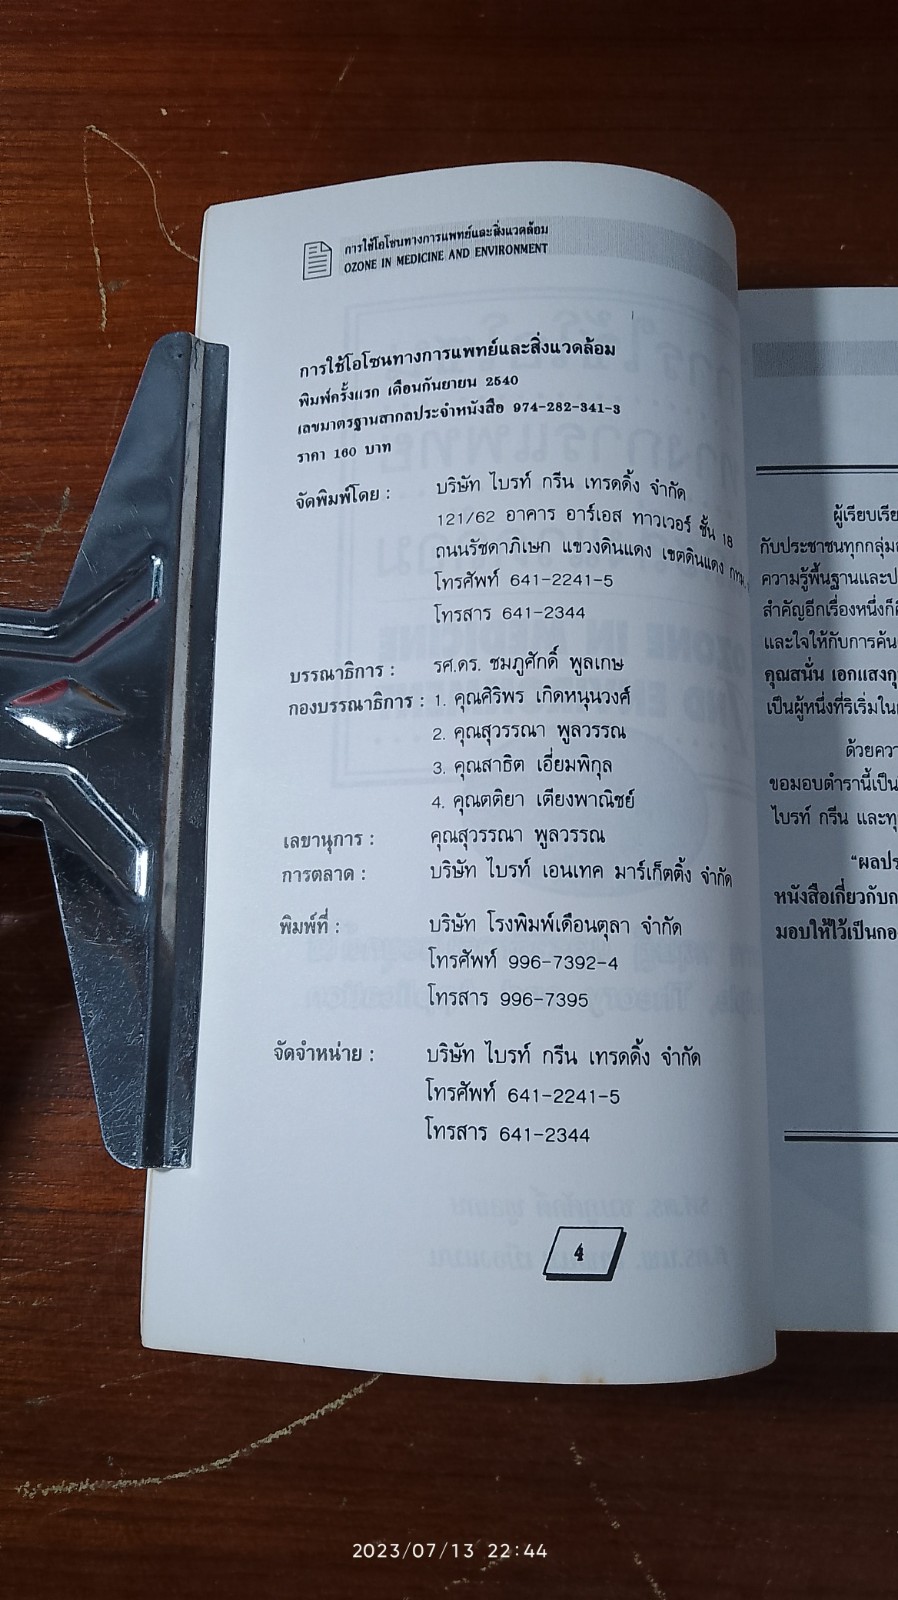 การใช้โอโซนทางการแพทย์และสิ่งแวดล้อม
OZONE IN MEDICINE AND ENVIRONMENT
การใช้โอโซนทางการแพทย์และสิ่งแวดล้อม
พิมพ์ครั้งแรก เดือนกันยายน 2540
เลขมาตรฐานสากลประจำหนังสือ 974-282-341-3
ราคา 160 บาท
จัดพิมพ์โดย : บริษัท ไบรท์ กรีน เทรดดิ้ง จำกัด
121/62 อาคาร อาร์เอส ทาวเวอร์ ชั้น 18
ถนนรัชดาภิเษก แขวงดินแดง เขตดินแดง กทม.
โทรศัพท์ 641-2241-5
โทรสาร 641-2344
บรรณาธิการ : รศ.ดร. ชมภูศักดิ์ พูลเกษ
กองบรรณาธิการ : 1. คุณศิริพร เกิดหนุนวงศ์
2. คุณสุวรรณา พูลวรรณ
3. คุณสาธิต เอี่ยมพิกุล
4. คุณตติยา เตียงพาณิชย์
เลขานุการ : คุณสุวรรณา พูลวรรณ
การตลาด : บริษัท ไบรท์ เอนเทค มาร์เก็ตติ้ง จำกัด
พิมพ์ที่ : บริษัท โรงพิมพ์เดือนตุลา จำกัด
โทรศัพท์ 996-7392-4
โทรสาร 996-7395
จัดจำหน่าย : บริษัท ไบรท์ กรีน เทรดดิ้ง จำกัด
โทรศัพท์ 641-2241-5
โทรสาร 641-2344
4
ผู้เรียบเรีย
กับประชาชนทุกกลุ่ม
ความรู้พื้นฐานและป
สำคัญอีกเรื่องหนึ่งก็
และใจให้กับการค้น
คุณสนั่น เอกแสงกุ
เป็นผู้หนึ่งที่ริเริ่มใน
ด้วยควา
ขอมอบตำรานี้เป็น
ไบรท์ กรีน และทุ
"ผลปร
หนังสือเกี่ยวกับก
มอบให้ไว้เป็นกอ
2023/07/13 22:44